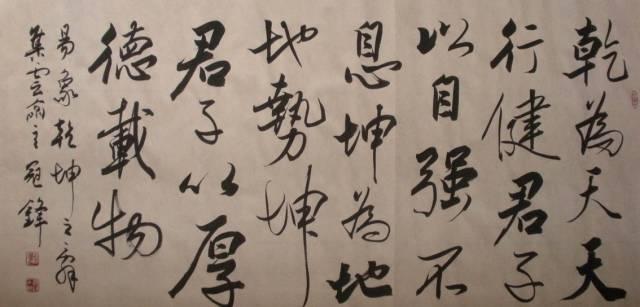 乾為天天
行健君子
以自强不
息坤為地
地勢坤
君子以厚
德載物
易象乾坤之辞
集雲齋主冠鋒